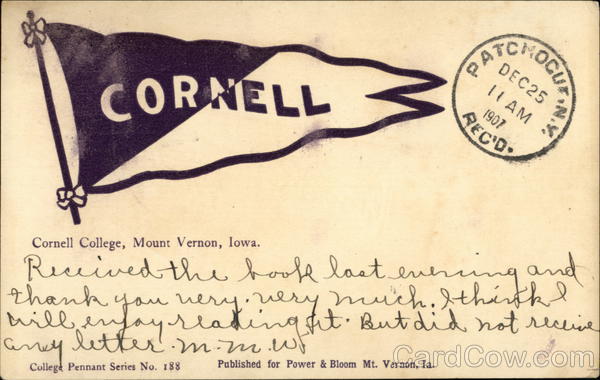 CORNELL
PATCHOGUE, N.Y.
DEC 25
11 AM
1907
REC'D.
Cornell College, Mount Vernon, Iowa.
Received the book last evening and
thank you very. very much. I think I
will enjoy reading it. But did not receive
any letter. M. M. W.
College Pennant Series No. 188
Published for Power & Bloom Mt. Vernon, Ia.
CardCow.com